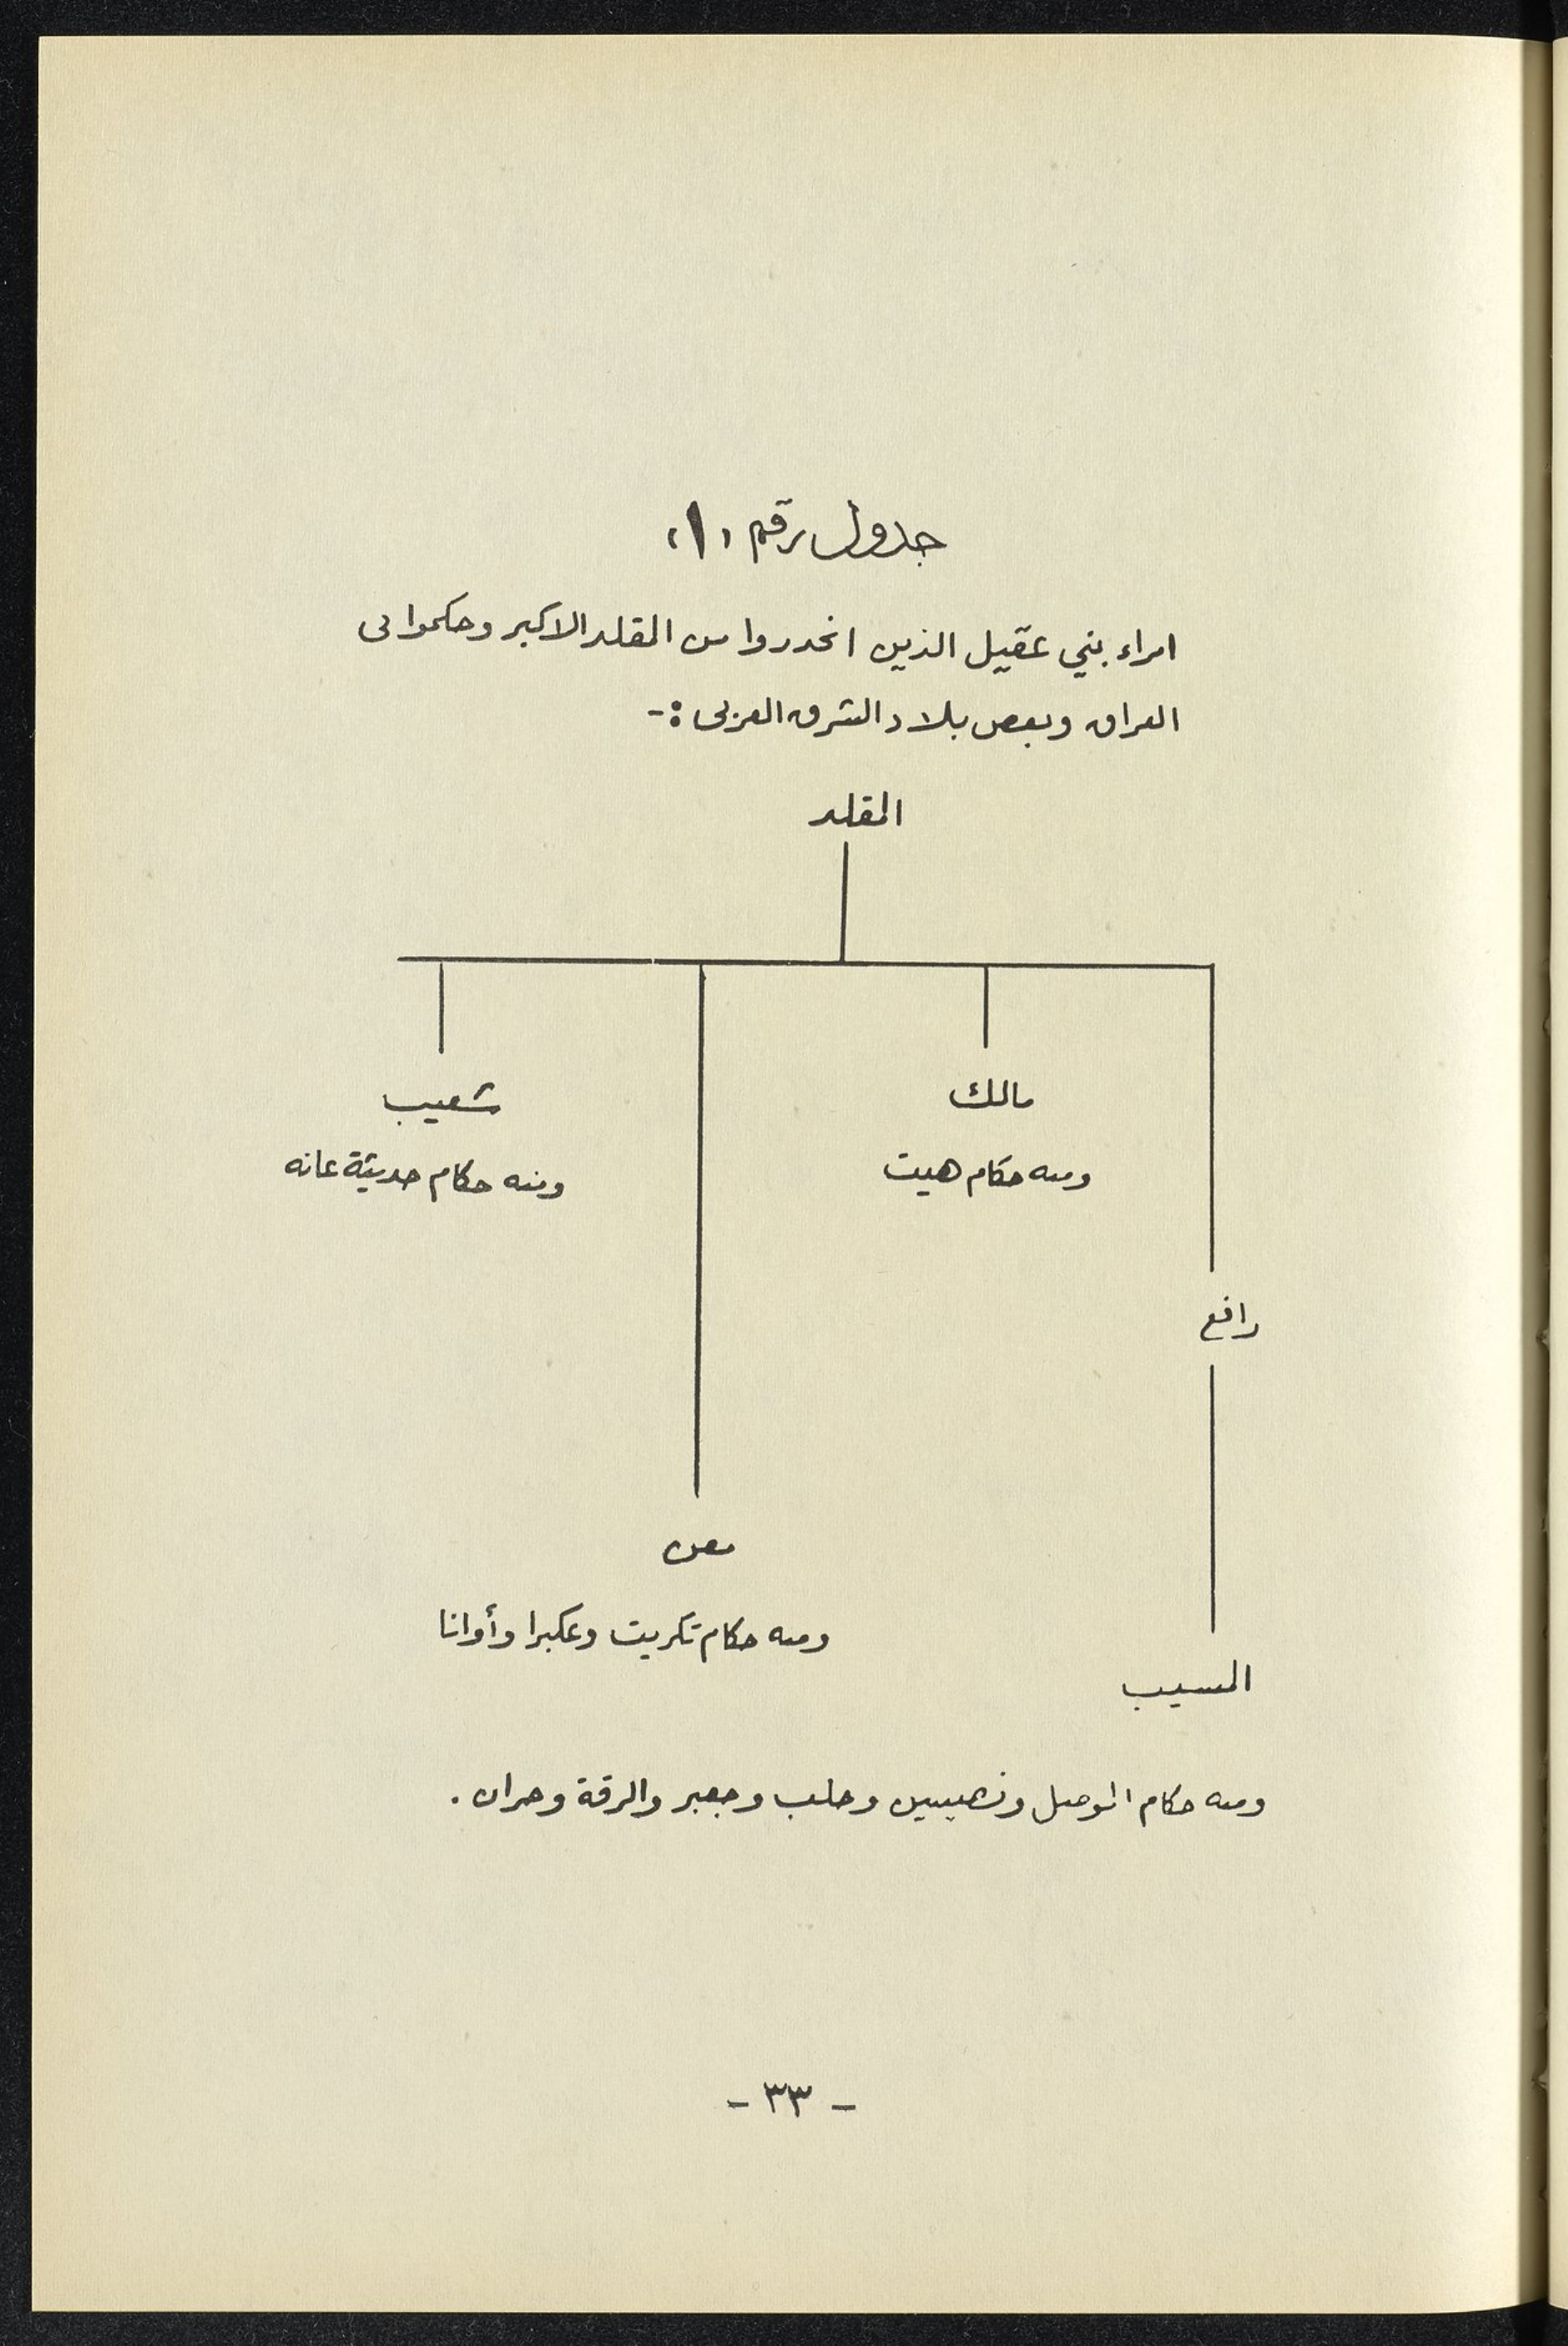 جدول رقم (١)
امراء بني عقيل الذين انحدروا من المقلد الاكبر وحكموا في
العراق وبعض بلاد الشرق العربي :-
المقلد
مالك
شعيب
ومنه حكام هيت
ومنه حكام حديثة عانه
رافع
معن
ومنه حكام تكريت وعكبرا وأوانا
المسيب
ومنه حكام الموصل ونصيبين وحلب وجعبر والرقة وحران .
- ٣٣ -